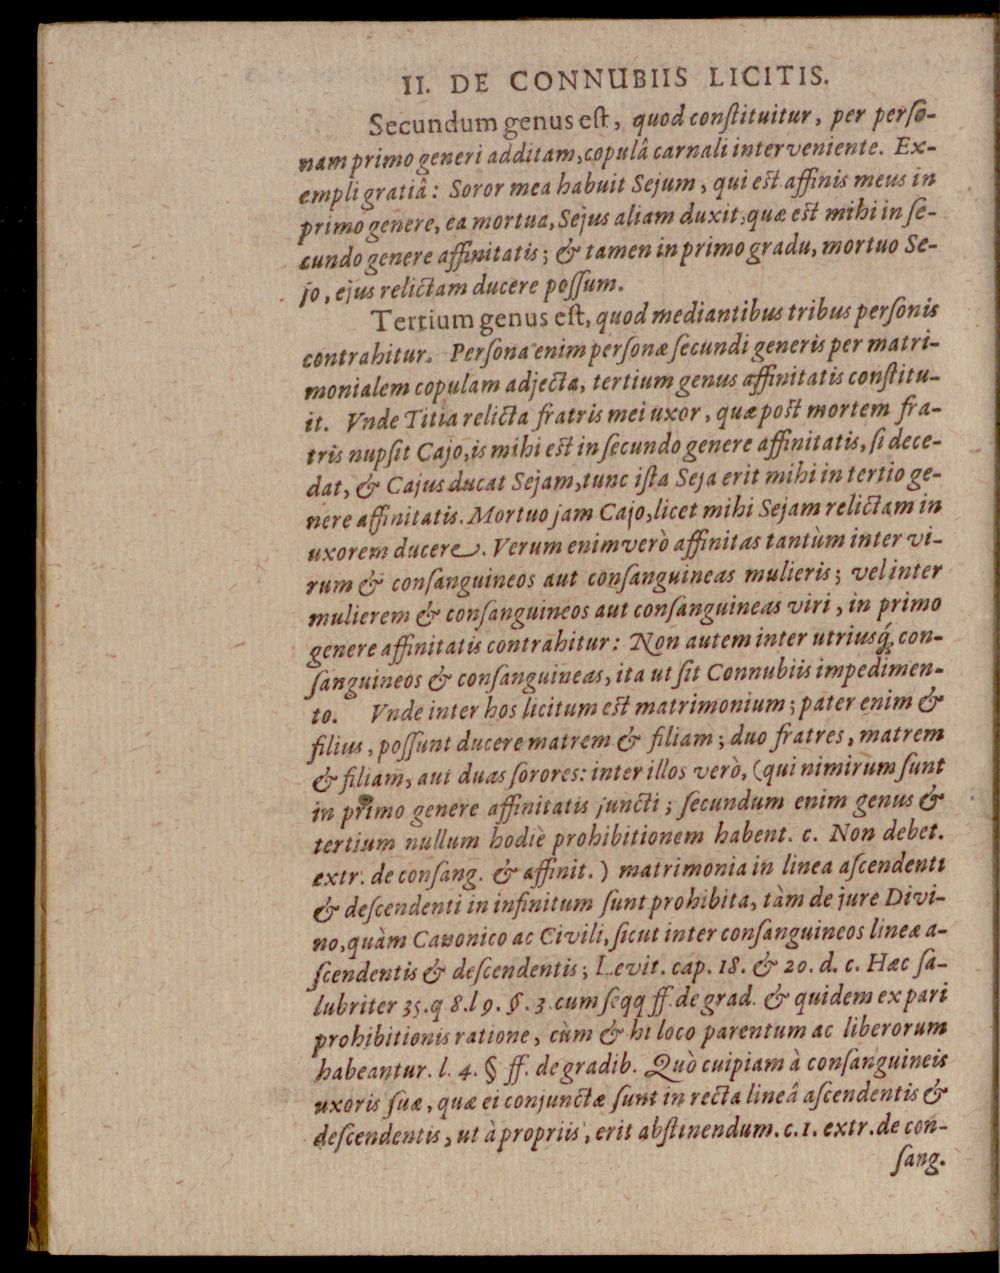 II. DE CONNUBIIS LICITIS.
Secundum genus est, quod conſtituitur, per perſo-
nam primo generi additam, copulâ carnali interveniente. Ex-
empli gratiâ: Soror mea habuit Sejum, qui est affinis meus in
primo genere, ea mortua, Sejus aliam duxit, quæ est mihi in ſe-
cundo genere affinitatis; & tamen in primo gradu, mortuo Se-
jo, ejus relictam ducere poſſum.
Tertium genus est, quod mediantibus tribus perſonis
contrahitur. Perſona enim perſonæ ſecundi generis per matri-
monialem copulam adjecta, tertium genus affinitatis conſtitu-
it. Vnde Titia relicta fratris mei uxor, quæ post mortem fra-
tris nupſit Cajo, is mihi est in ſecundo genere affinitatis, ſi dece-
dat, & Cajus ducat Sejam, tunc iſta Seja erit mihi in tertio ge-
nere affinitatis. Mortuo jam Cajo, licet mihi Sejam relictam in
uxorem ducere. Verum enimverò affinitas tantùm inter vi-
rum & conſanguineos aut conſanguineas mulieris; vel inter
mulierem & conſanguineos aut conſanguineas viri, in primo
genere affinitatis contrahitur: Non autem inter utriusq́; con-
ſanguineos & conſanguineas, ita ut ſit Connubiis impedimen-
to. Vnde inter hos licitum est matrimonium; pater enim &
filius, poſſunt ducere matrem & filiam; duo fratres, matrem
& filiam, aut duas ſorores: inter illos verò, (qui nimirum ſunt
in primo genere affinitatis juncti; ſecundum enim genus &
tertium nullum hodiè prohibitionem habent. c. Non debet.
extr. de conſang. & affinit.) matrimonia in linea aſcendenti
& deſcendenti in infinitum ſunt prohibita, tàm de jure Divi-
no, quàm Canonico ac Civili, ſicut inter conſanguineos lineæ a-
ſcendentis & deſcendentis; Levit. cap. 18. & 20. d. c. Hæc ſa-
lubriter 35. q 8. l 9. §. 3. cum ſeqq ff. de grad. & quidem ex pari
prohibitionis ratione, cùm & hi loco parentum ac liberorum
habeantur. l. 4. § ff. de gradib. Quò cuipiam à conſanguineis
uxoris ſuæ, quæ ei conjunctæ ſunt in recta lineâ aſcendentis &
deſcendentis, ut à propriis, erit abſtinendum. c. 1. extr. de con-
ſang.